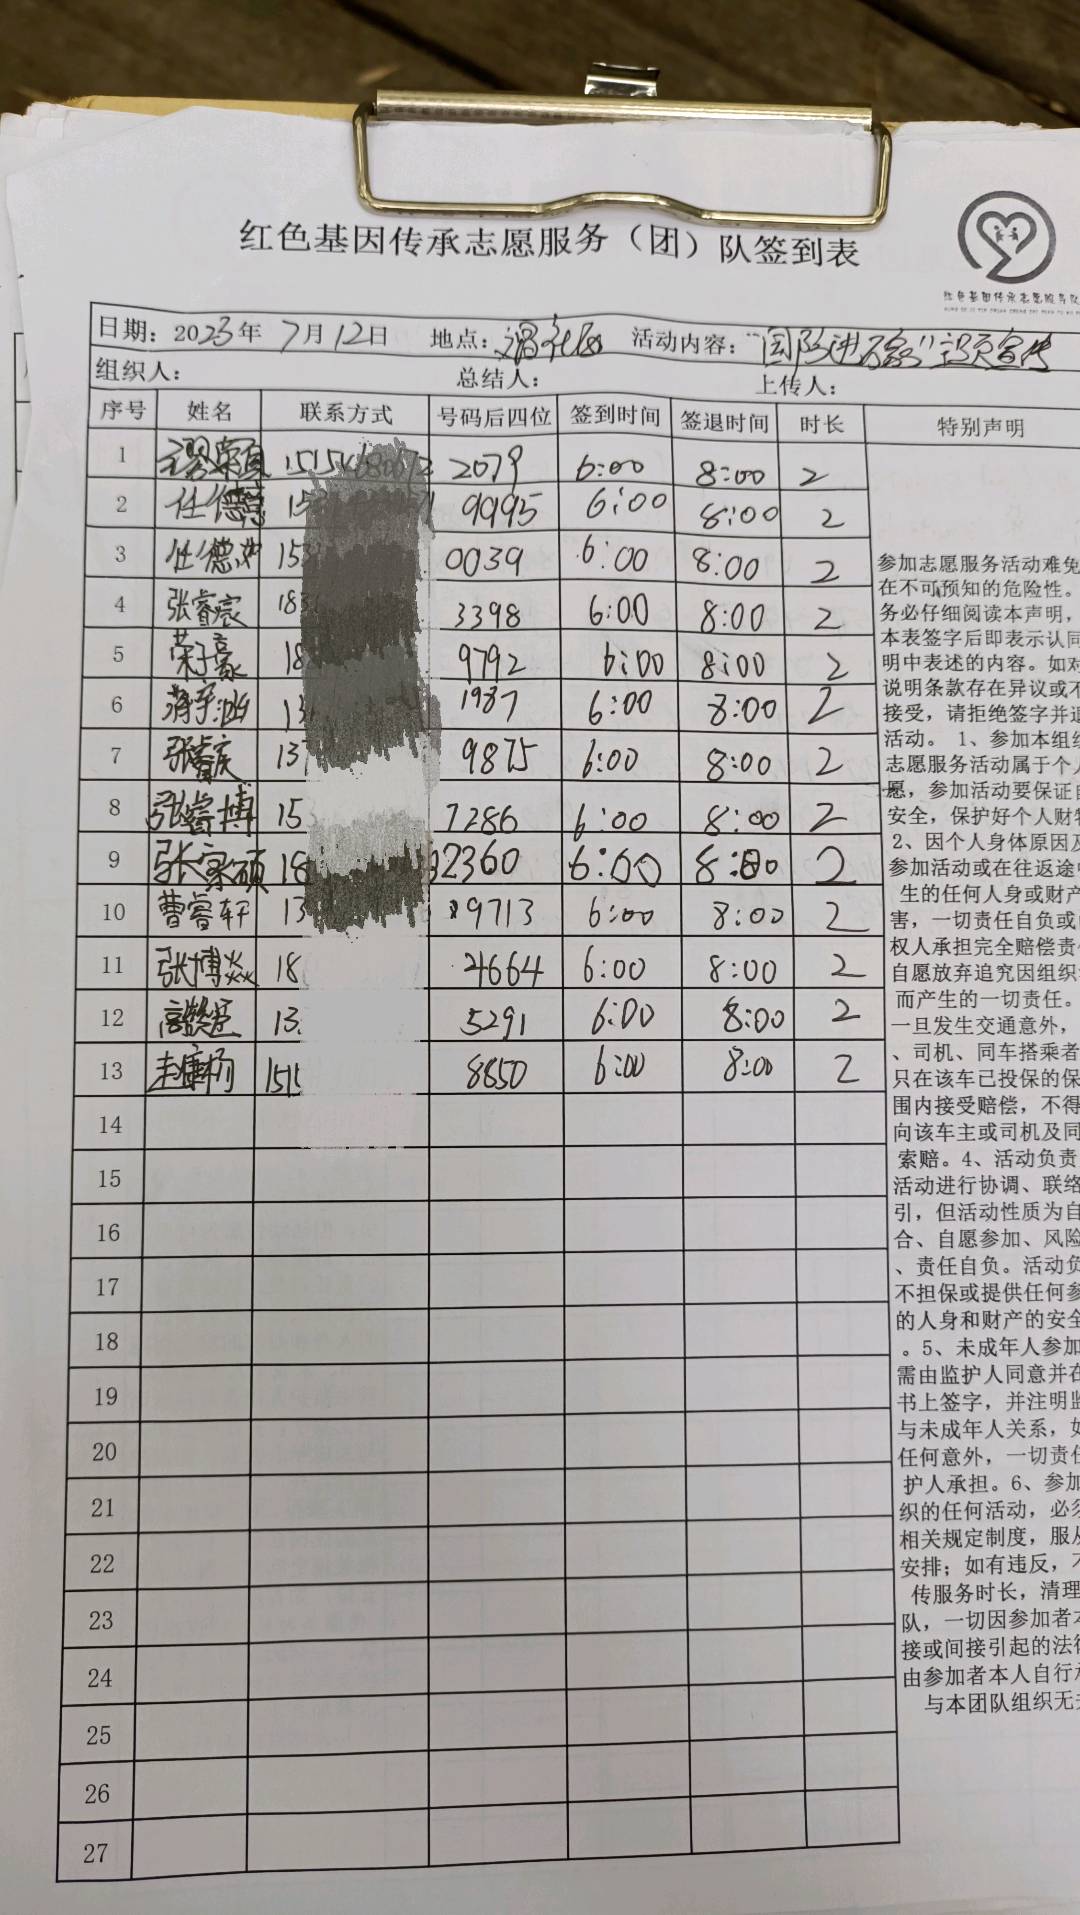 红色基因传承志愿服务（团）队签到表
红色基因传承志愿服务队
日期：2023年 7月12日 地点： 活动内容：
组织人： 总结人： 上传人：
序号 姓名 联系方式 号码后四位 签到时间 签退时间 时长 特别声明
1 2079 6:00 8:00 2
2 任德 9995 6:00 8:00 2
3 任德 0039 6:00 8:00 2
4 张睿宸 3398 6:00 8:00 2
5 荣子豪 9792 6:00 8:00 2
6 1987 6:00 8:00 2
7 张睿庆 9875 6:00 8:00 2
8 张睿博 7286 6:00 8:00 2
9 张家硕 2360 6:00 8:00 2
10 曹睿轩 9713 6:00 8:00 2
11 张博焱 4664 6:00 8:00 2
12 5291 6:00 8:00 2
13 8850 6:00 8:00 2
14
15
16
17
18
19
20
21
22
23
24
25
26
27
参加志愿服务活动难免
在不可预知的危险性。
务必仔细阅读本声明，
本表签字后即表示认同
明中表述的内容。如对
说明条款存在异议或不
接受，请拒绝签字并退
活动。 1、参加本组织
志愿服务活动属于个人
愿，参加活动要保证自
安全，保护好个人财物
2、因个人身体原因及
参加活动或在往返途中
生的任何人身或财产
害，一切责任自负或由
权人承担完全赔偿责任
自愿放弃追究因组织
而产生的一切责任。
一旦发生交通意外，
、司机、同车搭乘者
只在该车已投保的保
围内接受赔偿，不得
向该车主或司机及同
索赔。4、活动负责
活动进行协调、联络
引，但活动性质为自
合、自愿参加、风险
、责任自负。活动负
不担保或提供任何参
的人身和财产的安全
。5、未成年人参加
需由监护人同意并在
书上签字，并注明监
与未成年人关系，如
任何意外，一切责任
护人承担。6、参加
织的任何活动，必须
相关规定制度，服从
安排；如有违反，不
传服务时长，清理
队，一切因参加者本
接或间接引起的法律
由参加者本人自行承
与本团队组织无关